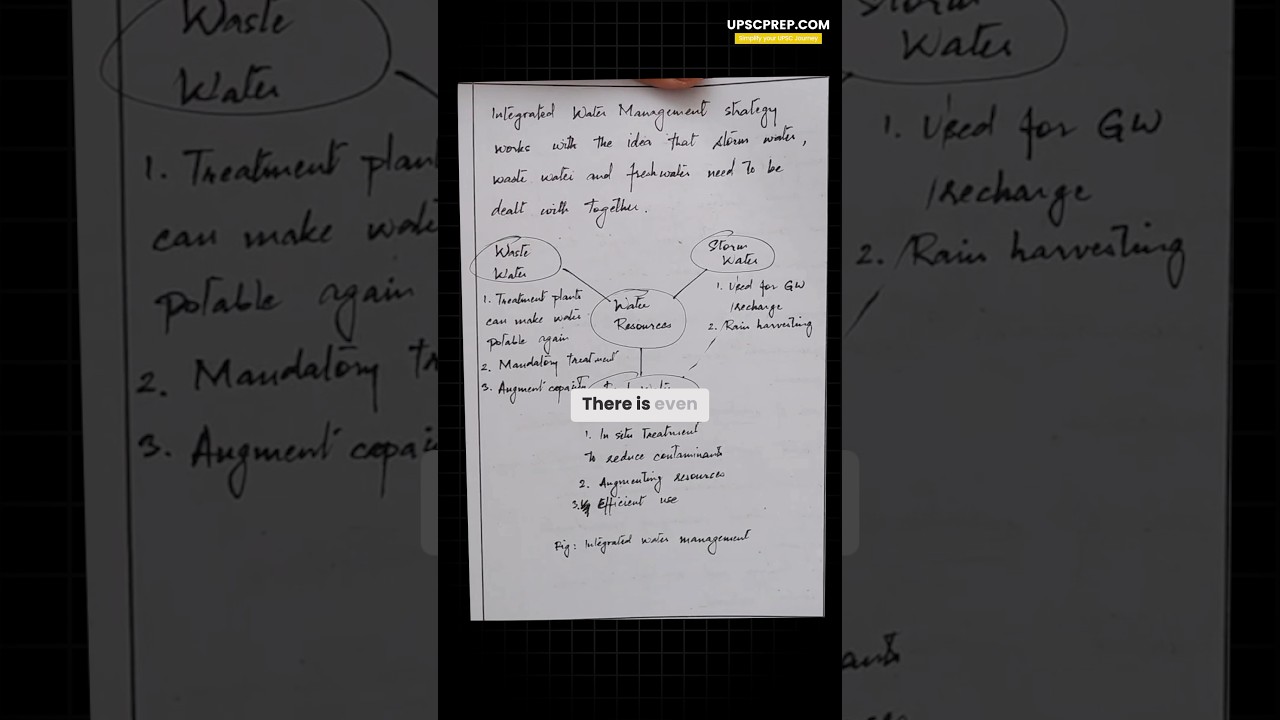 UPSCPREP.COM
Simplify your UPSC Journey
Integrated Water Management strategy
works with the idea that storm water,
waste water and freshwater need to be
dealt with together.
Waste
Water
1. Treatment plants
can make water
potable again
2. Mandatory treatment
3. Augment
Storm
Water
1. Used for GW
recharge
2. Rain harvesting
Water
Resources
There is even
1. In situ Treatment
to reduce contaminants
2. Augmenting resources
3. Efficient use
Fig: Integrated water management
Waste
Water
1. Treatment plan
can make wate
potable again
2. Mandatory tr
3. Augment
Storm
Water
1. Used for GW
recharge
2. Rain harvesting